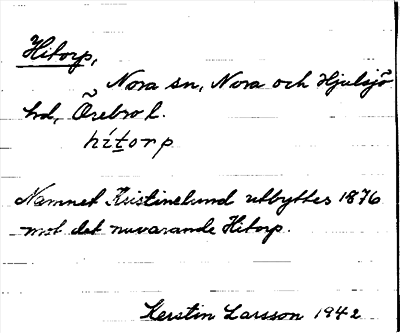 Hitorp,
Nora sn, Nora och Hjulsjö
hd, Örebro l.
hítorp
Namnet Kristinelund utbyttes 1876
mot det nuvarande Hitorp.
Kerstin Larsson 1942